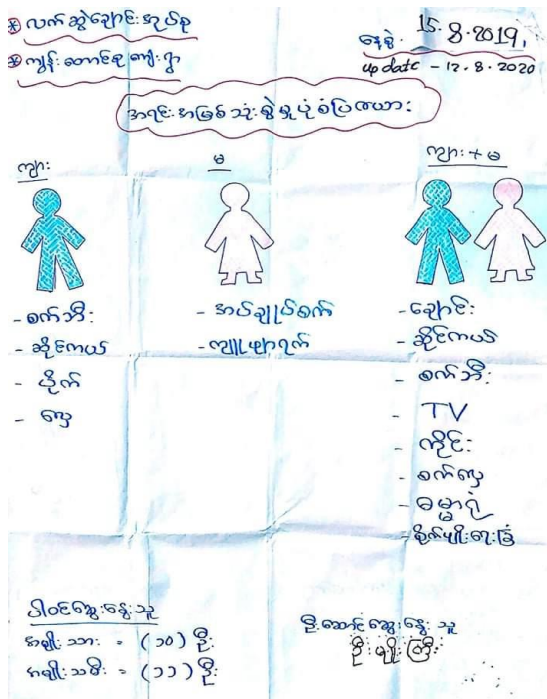 လက်ဆွဲချောင်းအုပ်စု
ကျွန်းတောင်စုကျေးရွာ
နေ့စွဲ. 15.8.2019.
update - 12.8.2020
အရင်းအမြစ်သုံးစွဲမှုပုံစံပြဇယား
ကျား
မ
ကျား+မ
- စက်ဘီး
- ဆိုင်ကယ်
- ပိုက်
- လှေ
- အပ်ချုပ်စက်
- ချောင်း
- ဆိုင်ကယ်
- စက်ဘီး
- TV
- ကိုင်း
- စက်လှေ
- ဓမ္မာရုံ
- စိုက်ပျိုးရေးခြံ
ပါဝင်ဆွေးနွေးသူ
အမျိုးသား = (၁၀) ဦး
အမျိုးသမီး = (၁၁) ဦး
ဦးဆောင်ဆွေးနွေးသူ
ဦးချိုကြီး